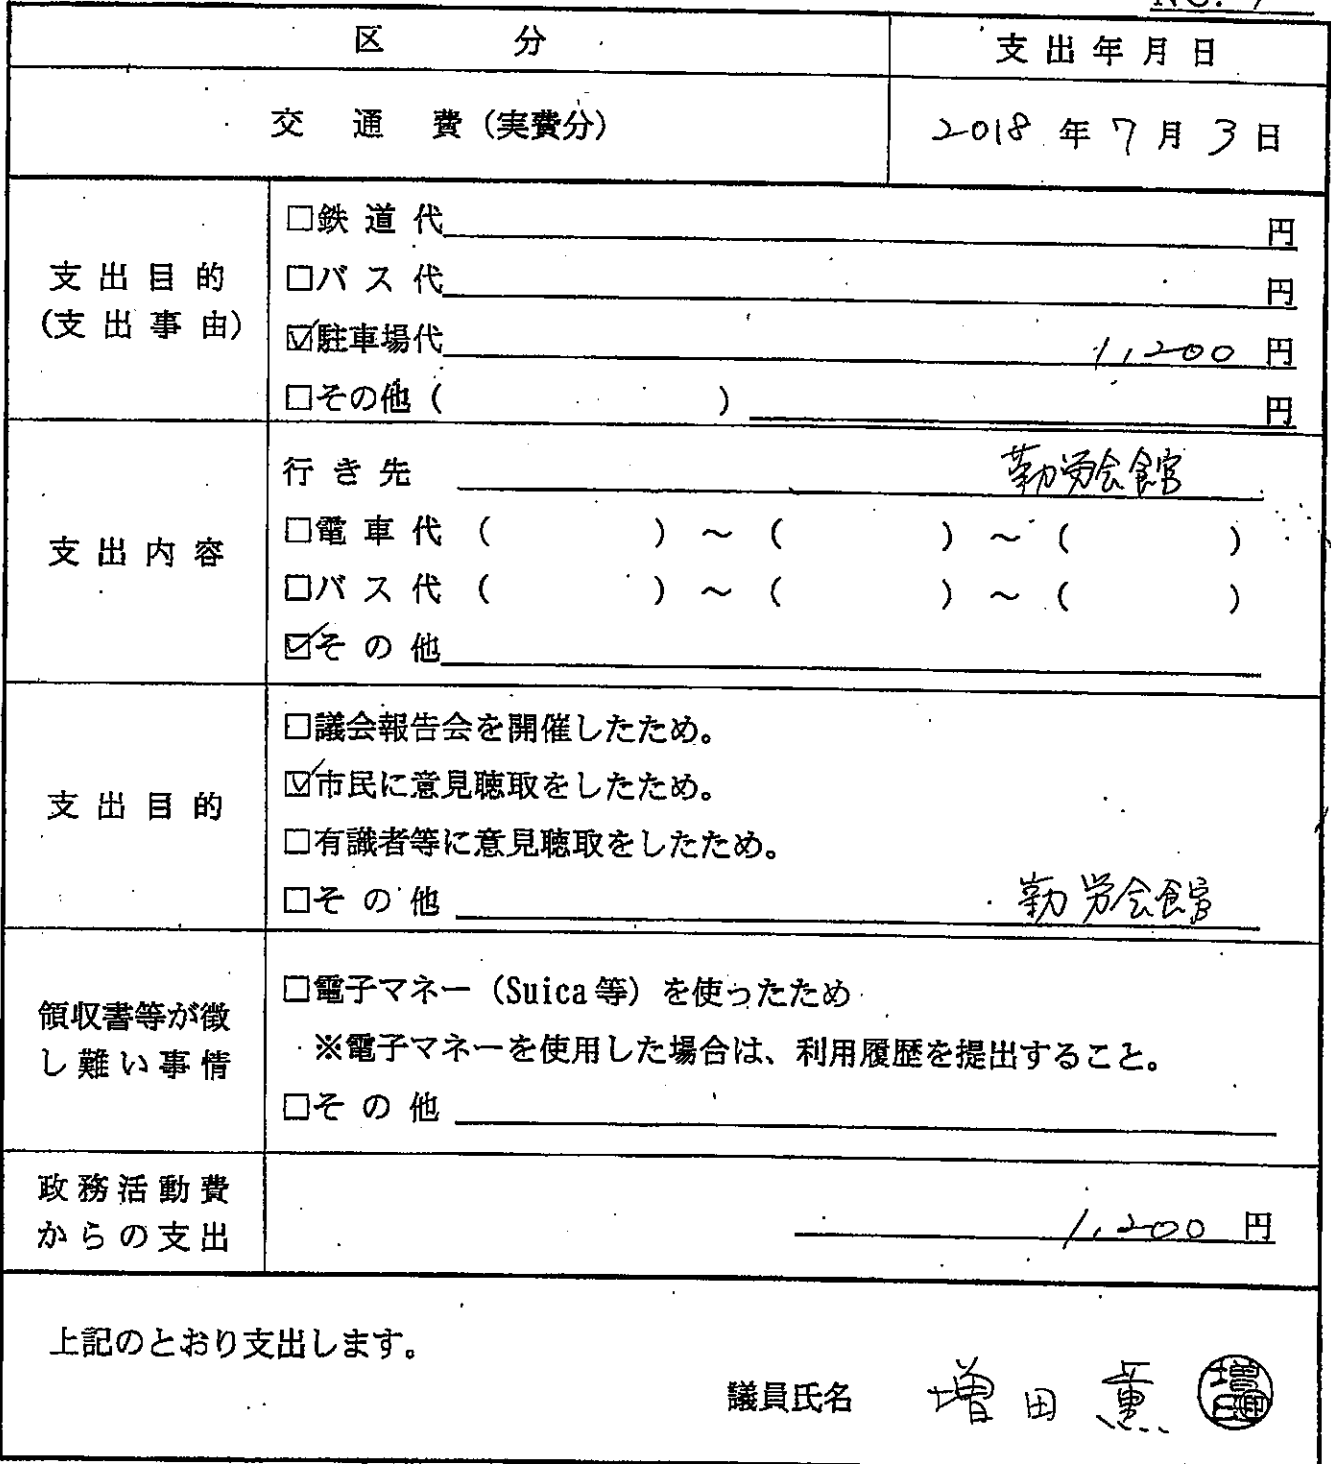 区　　分
支出年月日
交通費（実費分）
2018 年 7 月 3 日
支出目的
（支出事由）
□鉄道代 円
□バス代 円
☑駐車場代 1,200 円
□その他（　　　） 円
支出内容
行き先 勤労会館
□電車代（　　　）～（　　　）～（　　　）
□バス代（　　　）～（　　　）～（　　　）
☑その他
支出目的
□議会報告会を開催したため。
☑市民に意見聴取をしたため。
□有識者等に意見聴取をしたため。
□その他 勤労会館
領収書等が徴
し難い事情
□電子マネー（Suica等）を使ったため
※電子マネーを使用した場合は、利用履歴を提出すること。
□その他
政務活動費
からの支出
1,200 円
上記のとおり支出します。
議員氏名 増田 薫